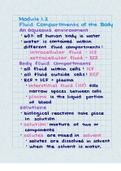 Module 1.2
Fluid Compartments of the Body
An aqueous environment
• 60% of human body is water
• water is contained within
different fluid compartments:
• intracellular fluid - ICF
• extracellular fluid - ECF
Body fluid compartments
• all fluid within cells: ICF
• all fluid outside cells: ECF
• ECF = ISF + plasma
• interstitial fluid (ISF) fills
narrow spaces between cells
• plasma is the liquid portion
of blood
Solutions
• biological reactions take place
in solution
• solution: mixture of two or
components
• solutes are mixed in solvent
• solutes are dissolved in solvent
when the solvent is water.